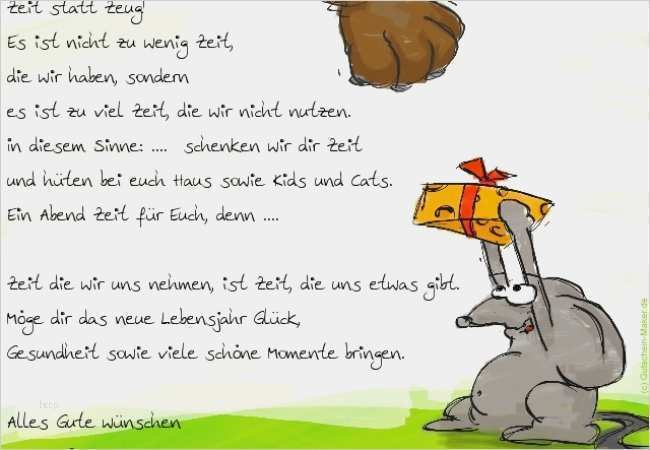 Zeit statt Zeug!
Es ist nicht zu wenig Zeit,
die wir haben, sondern
es ist zu viel Zeit, die wir nicht nutzen.
in diesem Sinne: .... schenken wir dir Zeit
und hüten bei euch Haus sowie Kids und Cats.
Ein Abend Zeit für Euch, denn ....
Zeit die wir uns nehmen, ist Zeit, die uns etwas gibt.
Möge dir das neue Lebensjahr Glück,
Gesundheit sowie viele schöne Momente bringen.
Alles Gute wünschen
(c) Gutschein-Maker.de